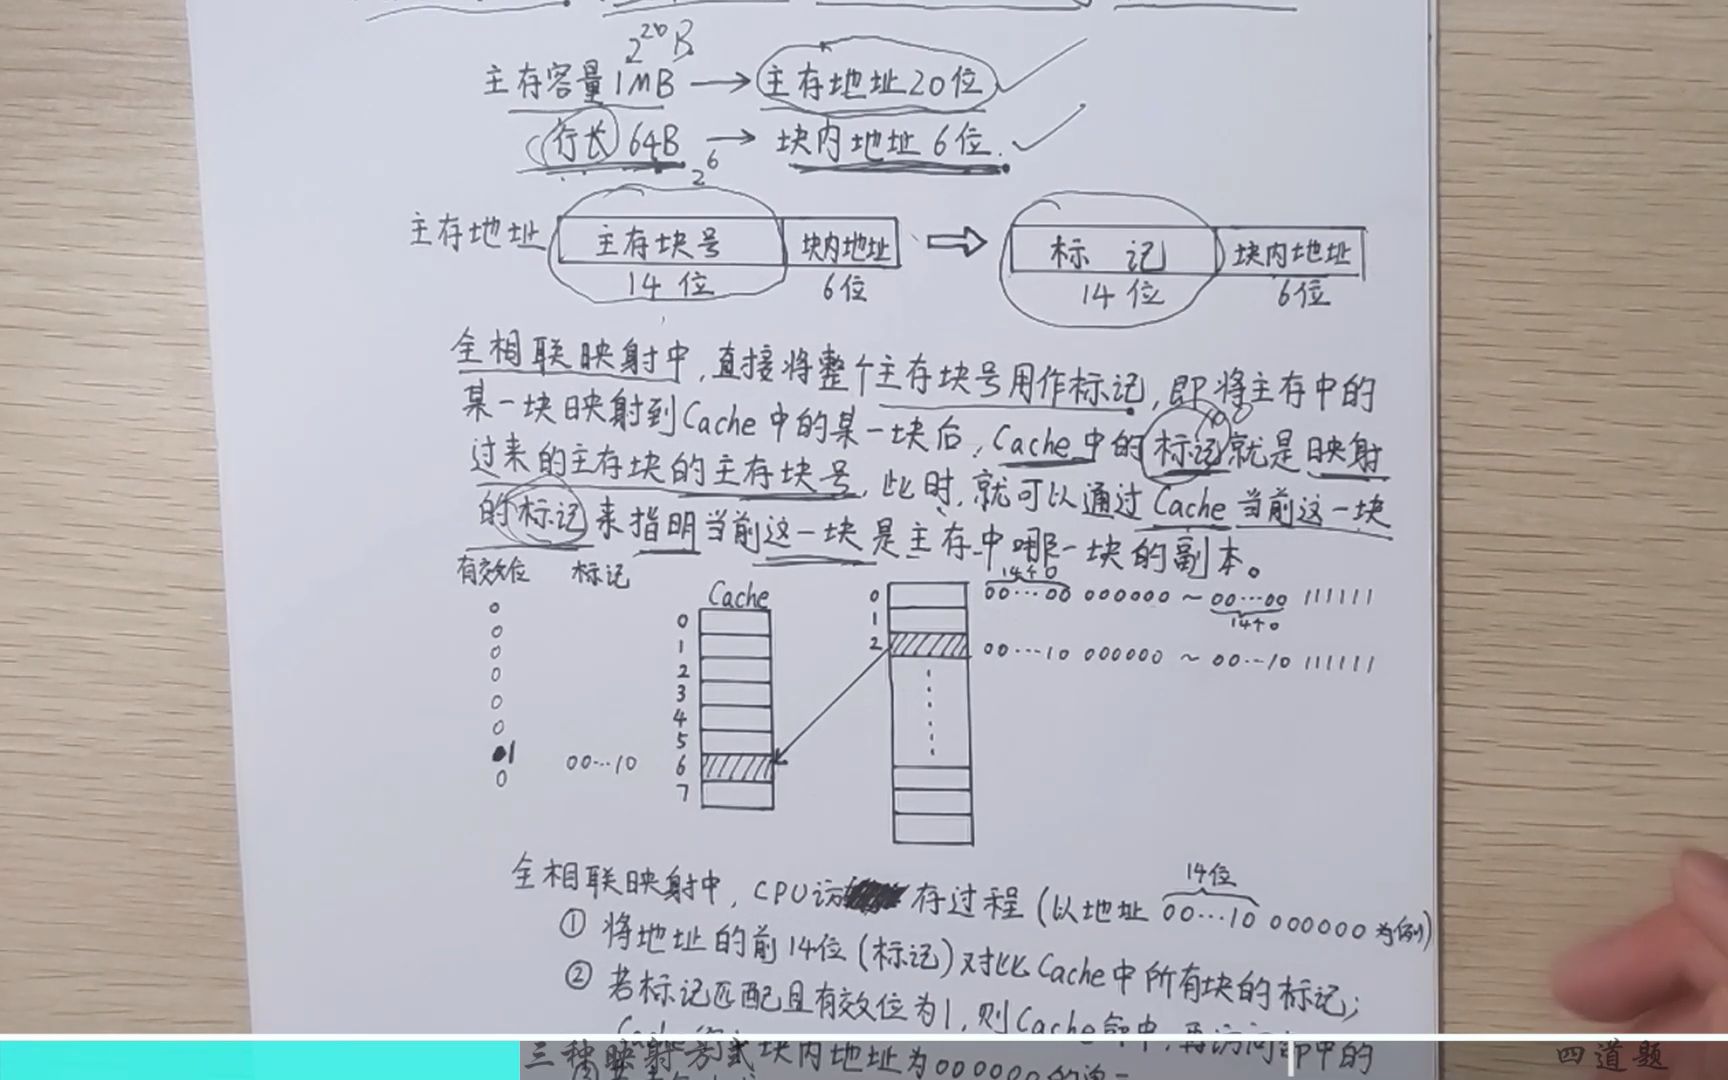 2²⁰B
主存容量1MB → 主存地址20位
行长 64B → 块内地址 6位.
2⁶
主存地址 主存块号 块内地址 ⇒ 标 记 块内地址
14 位 6位 14 位 6位
全相联映射中,直接将整个主存块号用作标记,即将主存中的
某一块映射到Cache中的某一块后,Cache中的标记就是映射
过来的主存块的主存块号,此时,就可以通过Cache当前这一块
的标记来指明当前这一块是主存中哪一块的副本。
有效位 标记 Cache
14个0
0 00…00 000000 ~ 00…00 111111
14个0
1
2 00…10 000000 ~ 00…10 111111
0 0
0 1
0 2
0 3
0 4
0 5
1 00…10 6
0 7
14位
全相联映射中,CPU访存过程(以地址 00…10 000000 为例)
① 将地址的前14位(标记)对比Cache中所有块的标记;
② 若标记匹配且有效位为1,则Cache命中,再访问
块内地址为000000的
三种映射方式 四道题